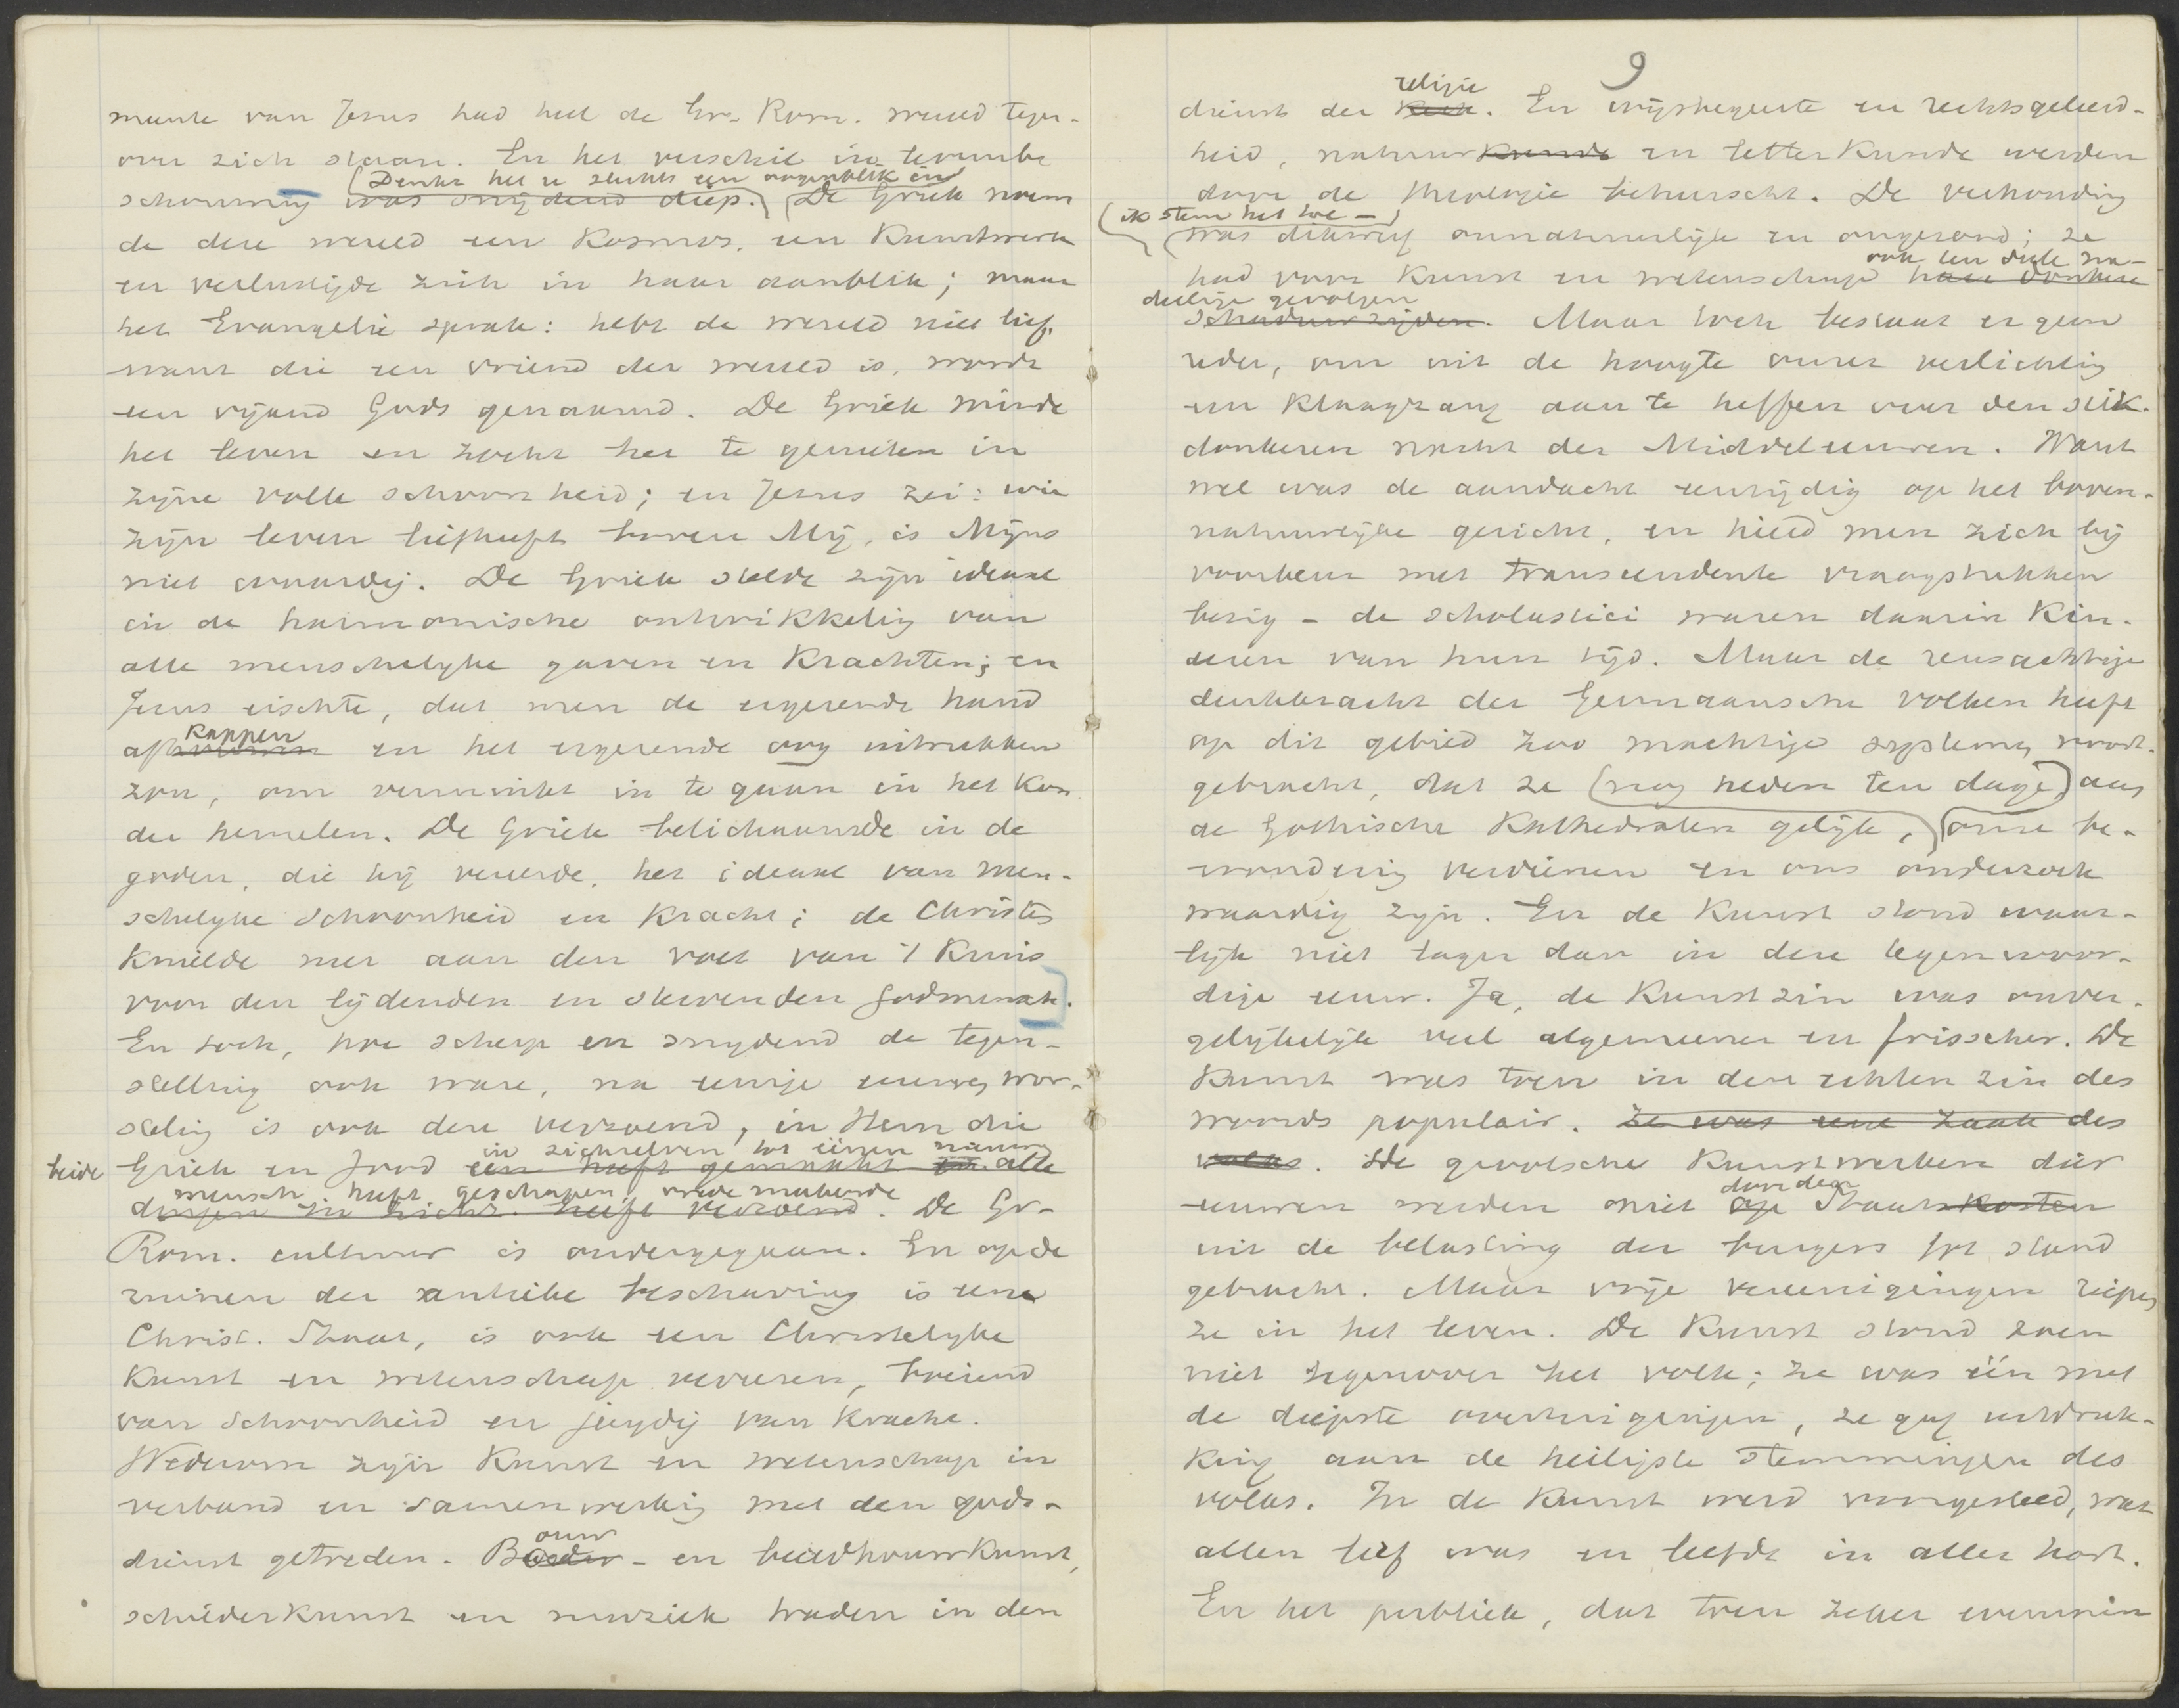 meente van Jezus had heel de Gr.- Rom. wereld tegen-
over zich staan. En het verschil in levensbe
(Denkt het u slechts één oogenblik in)
schouwing was snijdend diep. De Griek noem
de deze wereld een Kosmos, een Kunstwerk
en verlustigde zich in haar aanblik; maar
het Evangelie sprak: hebt de wereld niet lief,
want die een vriend der wereld is, wordt
een vijand Gods genaamd. De Griek minde
het leven en zocht het te genieten in
zijne volle schoonheid; en Jezus zei: wie
zijn leven liefheeft boven Mij, is Mijns
niet waardig. De Griek stelde zijn ideaal
in de harmonische ontwikkelig van
alle menschelijke gaven en Krachten; en
Jezus eischte, dat men de ergerende hand
kappen
af en het ergerende oog uitrukken
zou, om verminkt in te gaan in het Kon.
der hemelen. De Griek belichaamde in de
goden, die hij vereerde, het ideaal van men-
schelyke schoonheid en Kracht; de Christen
Knielde neer aan den voet van 't Kruis
voor den lijdenden en stervenden Godmensch.
En toch, hoe scherp en snydend de tegen-
stelling ook ware, na eenige eeuwen wor-
steling is ook deze verzoend, in Hem die
in zichzelven tot éénen nieuwen
beide Griek en Jood één heeft gemaakt en alle
mensch heeft geschapen, vrede makende
dingen in zich heeft verzoend. De Gr-
Rom. cultuur is ondergegaan. En op de
ruinen der antieke beschaving is eene
Christ. Staat, is ook een Christelyke
Kunst en wetenschap verrezen, boeiend
van schoonheid en jeugdig van Kracht.
Wederom zijn Kunst en wetenschap in
verband en samenwerkig met den gods-
ouw
dienst getreden. B - en beeldhouwkunst,
schilderkunst en muziek traden in den
9
religie
dienst der Kerk. En wijsbegeerte en rechtsgeleerd-
heid, natuurkunde en letterkunde werden
door de theologie beheerscht. De verhouding
(ik stem het toe -)
was dikwerf onnatuurlijk en ongezond; ze
ook ten deele na-
had voor Kunst en wetenschap hare donkere
deelige gevolgen
schaduwzijden. Maar toch bestaat er geen
reden, om uit de hoogte onzer verlichting
een Klaagzang aan te heffen over den stik-
donkeren nacht der Middeleeuwen. Want
wel was de aandacht eenzijdig op het boven-
natuurlijke gericht, en hield men zich bij
voorkeur met transcendente vraagstukken
bezig - de scholastici waren daarin Kin-
deren van hun tijd. Maar de reusachtige
denkkracht der Germaansche volken heeft
op dit gebied zoo machtige systemen voort-
gebracht, dat ze (nog heden ten dage) aan
de Gothische Kathedralen gelijk, onze be-
wondering verdienen en ons onderzoek
waardig zijn. En de Kunst stond waar-
lijk niet lager dan in deze tegenwoor-
dige eeuw. Ja, de Kunstzin was onver-
gelijkelijk veel algemeener en frisscher. De
Kunst was toen in den echten zin des
woords populair. Ze was eene zaak des
volks. De gevolsche Kunstwerken dier
door den
eeuwen werden niet op Staatskosten
uit de belasting der burgers tot stand
gebracht. Maar vrije vereenigingen riepen
ze in het leven. De Kunst stond toen
niet tegenover het volk; ze was één met
de diepste overtuigingen, ze gaf uitdruk-
king aan de heiligste stemmingen des
volks. In de Kunst werd voorgesteld, wat
allen lief was en leefde in aller hart.
En het publiek, dat toen zeker evenmin